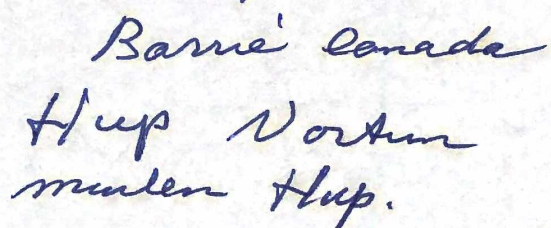 Barrie Canada
Hup Nortum
mulen Hup.